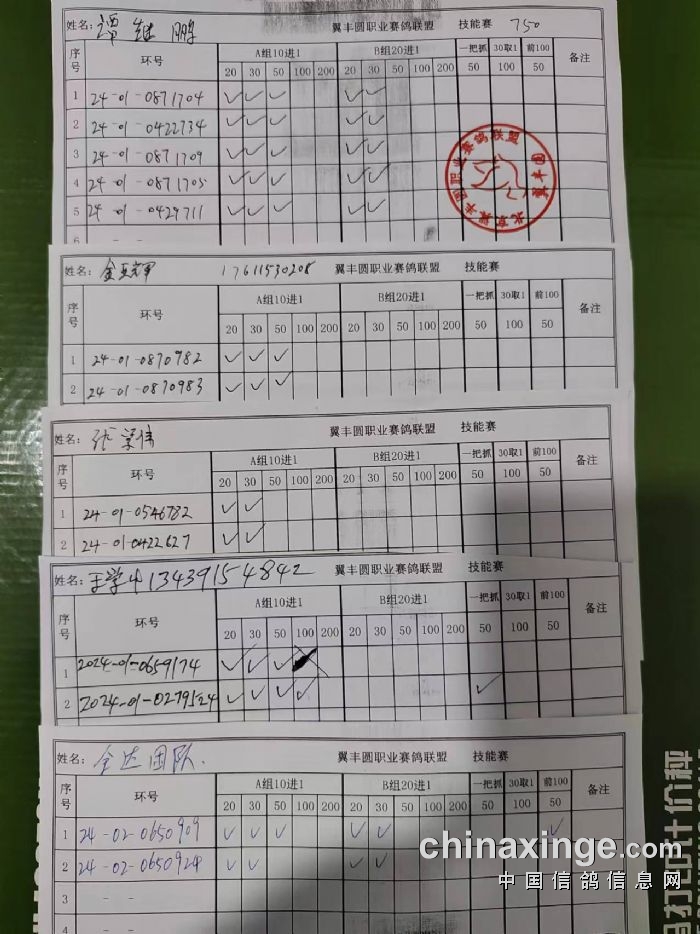 谭继鹏 翼丰圆职业赛鸽联盟 技能赛 750
序号 环号 A组10进1 B组20进1 一把抓 30取1 前100 备注
20 30 50 100 200 20 30 50 100 200 50 100 50
1 24-01-0871704 ✓ ✓ ✓ ✓ ✓
2 24-01-0422734 ✓ ✓ ✓ ✓ ✓
3 24-01-0871709 ✓ ✓ ✓ ✓ ✓
4 24-01-0871705 ✓ ✓ ✓ ✓ ✓
5 24-01-0429711 ✓ ✓ ✓ ✓ ✓
6 - -
北京翼丰圆职业赛鸽联盟
姓名: 金亚辉 17611530208 翼丰圆职业赛鸽联盟 技能赛
序号 环号 A组10进1 B组20进1 一把抓 30取1 前100 备注
20 30 50 100 200 20 30 50 100 200 50 100 50
1 24-01-0870982 ✓ ✓ ✓
2 24-01-0870983 ✓ ✓ ✓
姓名: 张 伟 翼丰圆职业赛鸽联盟 技能赛
序号 环号 A组10进1 B组20进1 一把抓 30取1 前100 备注
20 30 50 100 200 20 30 50 100 200 50 100 50
1 24-01-0546782 ✓ ✓
2 24-01-0422627 ✓ ✓
姓名: 王学 13439154842 翼丰圆职业赛鸽联盟 技能赛
序号 环号 A组10进1 B组20进1 一把抓 30取1 前100 备注
20 30 50 100 200 20 30 50 100 200 50 100 50
1 2024-01-0659174 ✓ ✓ ✓
2 2024-01-0279524 ✓ ✓ ✓ ✓ ✓
姓名: 全达团队 翼丰圆职业赛鸽联盟 技能赛
序号 环号 A组10进1 B组20进1 一把抓 30取1 前100 备注
20 30 50 100 200 20 30 50 100 200 50 100 50
1 24-02-0650909 ✓ ✓ ✓ ✓ ✓ ✓
2 24-02-0650924 ✓ ✓ ✓ ✓
3 - -
4 - -
chinaxinge.com
中国信鸽信息网
打印计价秤